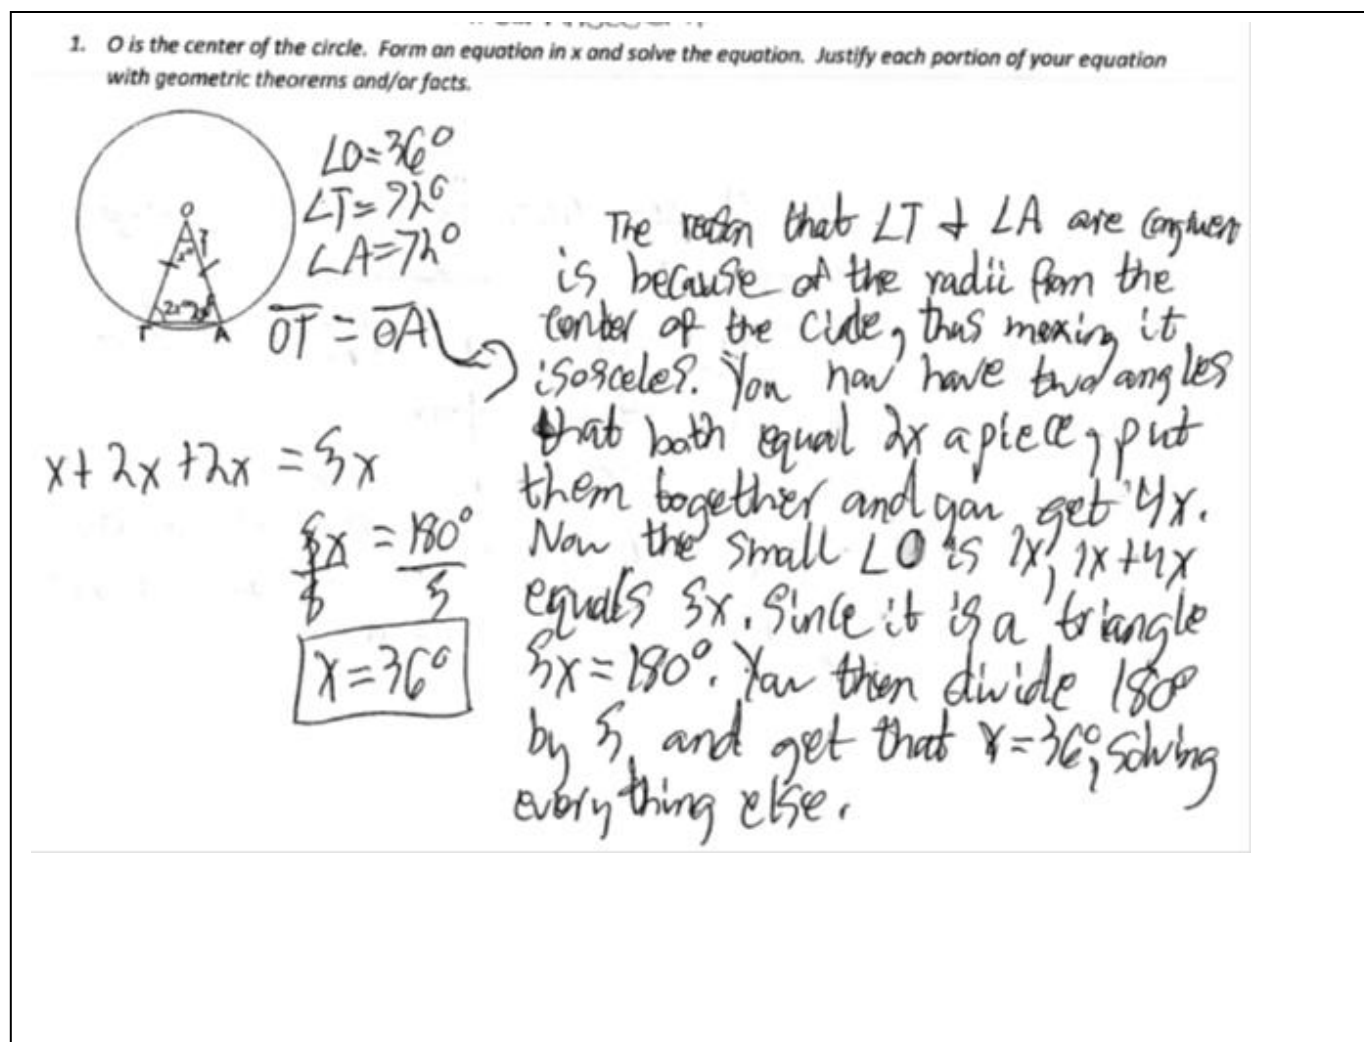 1. O is the center of the circle. Form an equation in x and solve the equation. Justify each portion of your equation
with geometric theorems and/or facts.
O
x°
2x°
T
A
∠O=36°
∠T=72°
∠A=72°
OT = OA
x+2x+2x = 5x
5x = 180°
5 5
x=36°
The reason that ∠T & ∠A are congruent
is because of the radii from the
center of the circle, thus making it
isosceles. You now have two angles
that both equal 2x apiece, put
them together and you get 4x.
Now the small ∠O is 1x, 1x+4x
equals 5x. Since it is a triangle
5x=180°. You then divide 180°
by 5, and get that x=36°, solving
everything else.